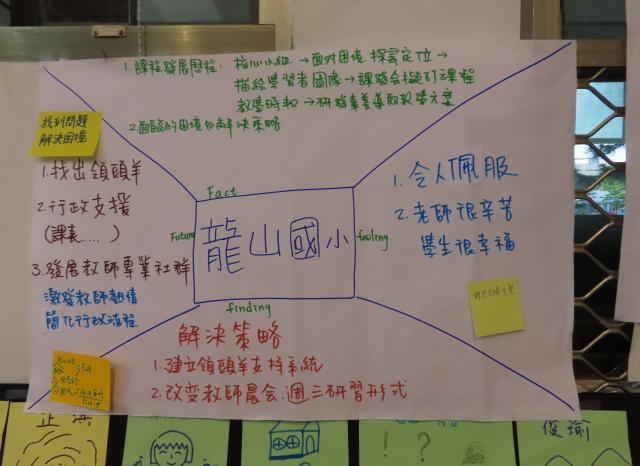 1.課程發展歷程: 核心小組→面對困境.探尋定位→
描繪學習者圖像→課發會擬訂課程
教學時數→研發素養導向教學方案
2.面臨的困境和解決策略
找到問題
解決困境
1.找出領頭羊
2.行政支援
(課表.....)
3.發展教師專業社群
激發教師熱情
簡化行政流程
Fact
Future
龍山國小
feeling
finding
1.令人佩服
2.老師很辛苦
學生很幸福
解決策略
1.建立領頭羊支持系統
2.改變教師晨會.週三研習形式
正洪
! ?
俊瑜